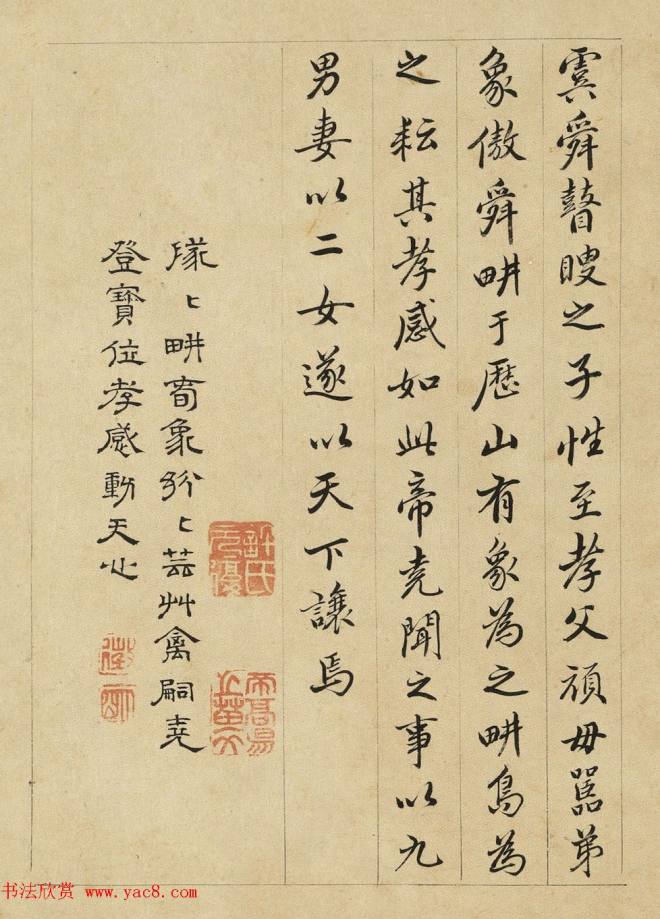 虞舜瞽瞍之子性至孝父頑母嚚弟
象傲舜畊于歷山有象為之畊鳥為
之耘其孝感如此帝堯聞之事以九
男妻以二女遂以天下讓焉
隊〻畊旾象紛〻芸艸禽嗣堯
登寶位孝感動天心
許氏元復
書法欣赏 www.yac8.com